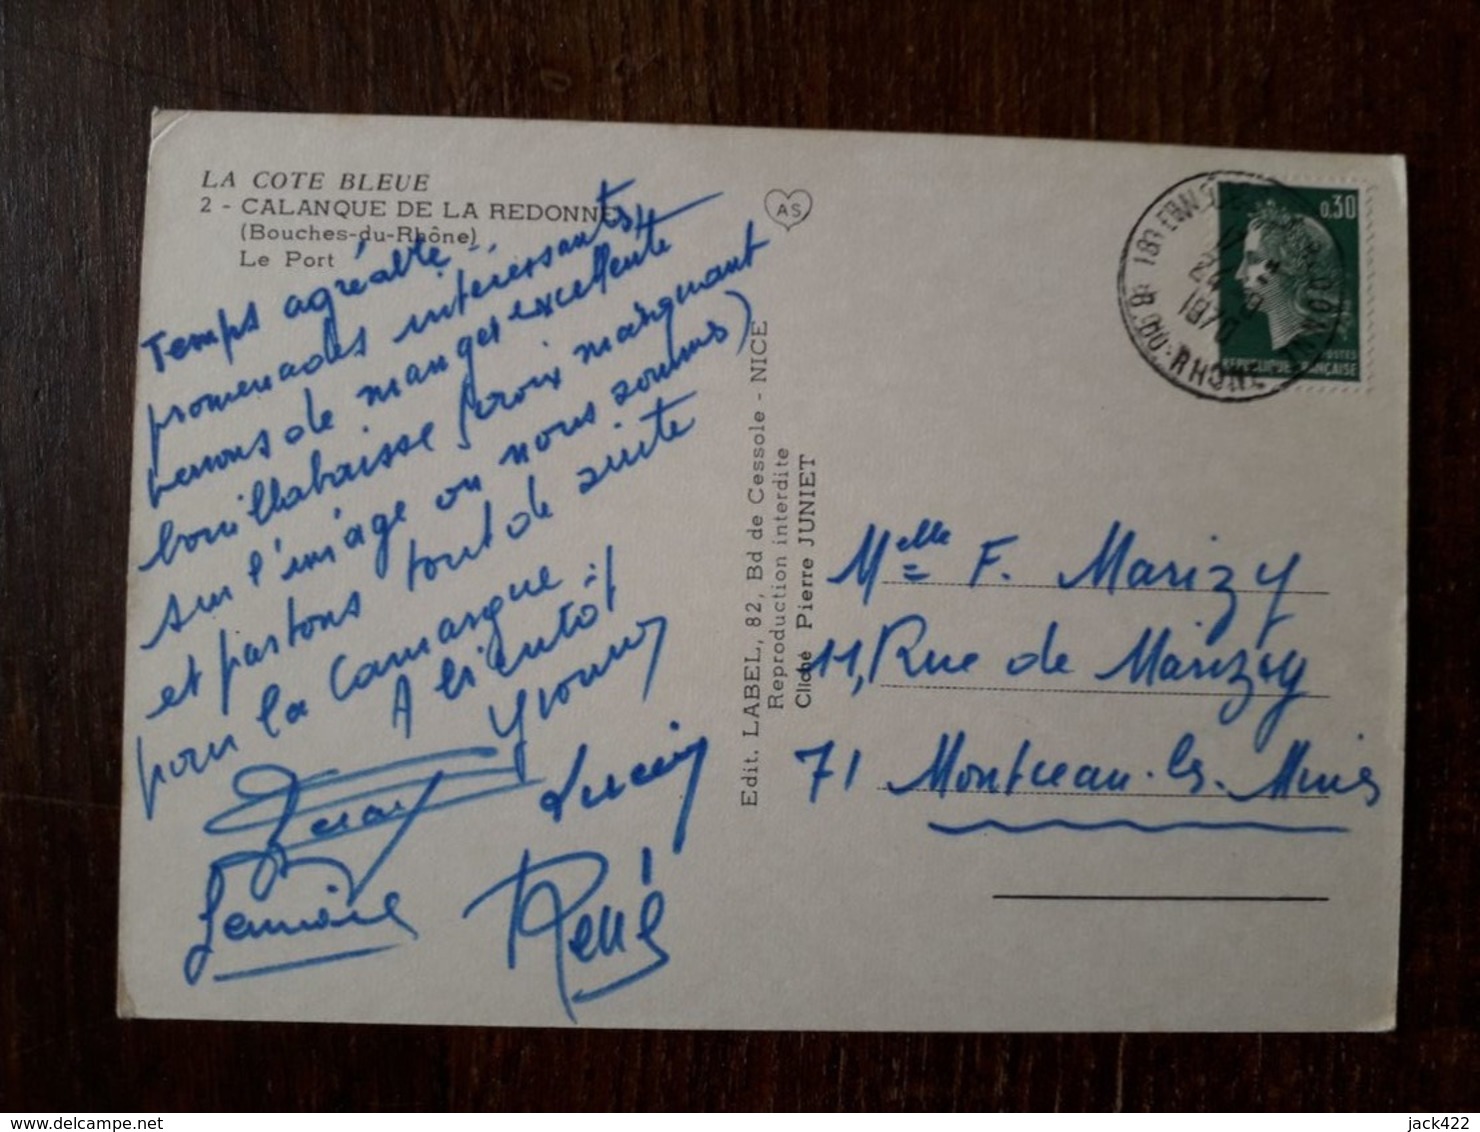 LA COTE BLEUE
2 - CALANQUE DE LA REDONNE
(Bouches-du-Rhône)
Le Port
Temps agréable -
promenades intéressants,
venons de manger excellente
bouillabaisse (croix marquant
sur l'image où nous sommes)
et partons tout de suite
pour la Camargue.
A bientôt
Yvonne
Lucien
René
AS
Edit. LABEL, 82, Bd de Cessole - NICE
Reproduction interdite
Cliché Pierre JUNIET
0,30
POSTES
REPUBLIQUE FRANÇAISE
1970
B. DU RHONE
Melle F. Marizy
11, Rue de Marizy
71 Montceau-les-Mines
jack422